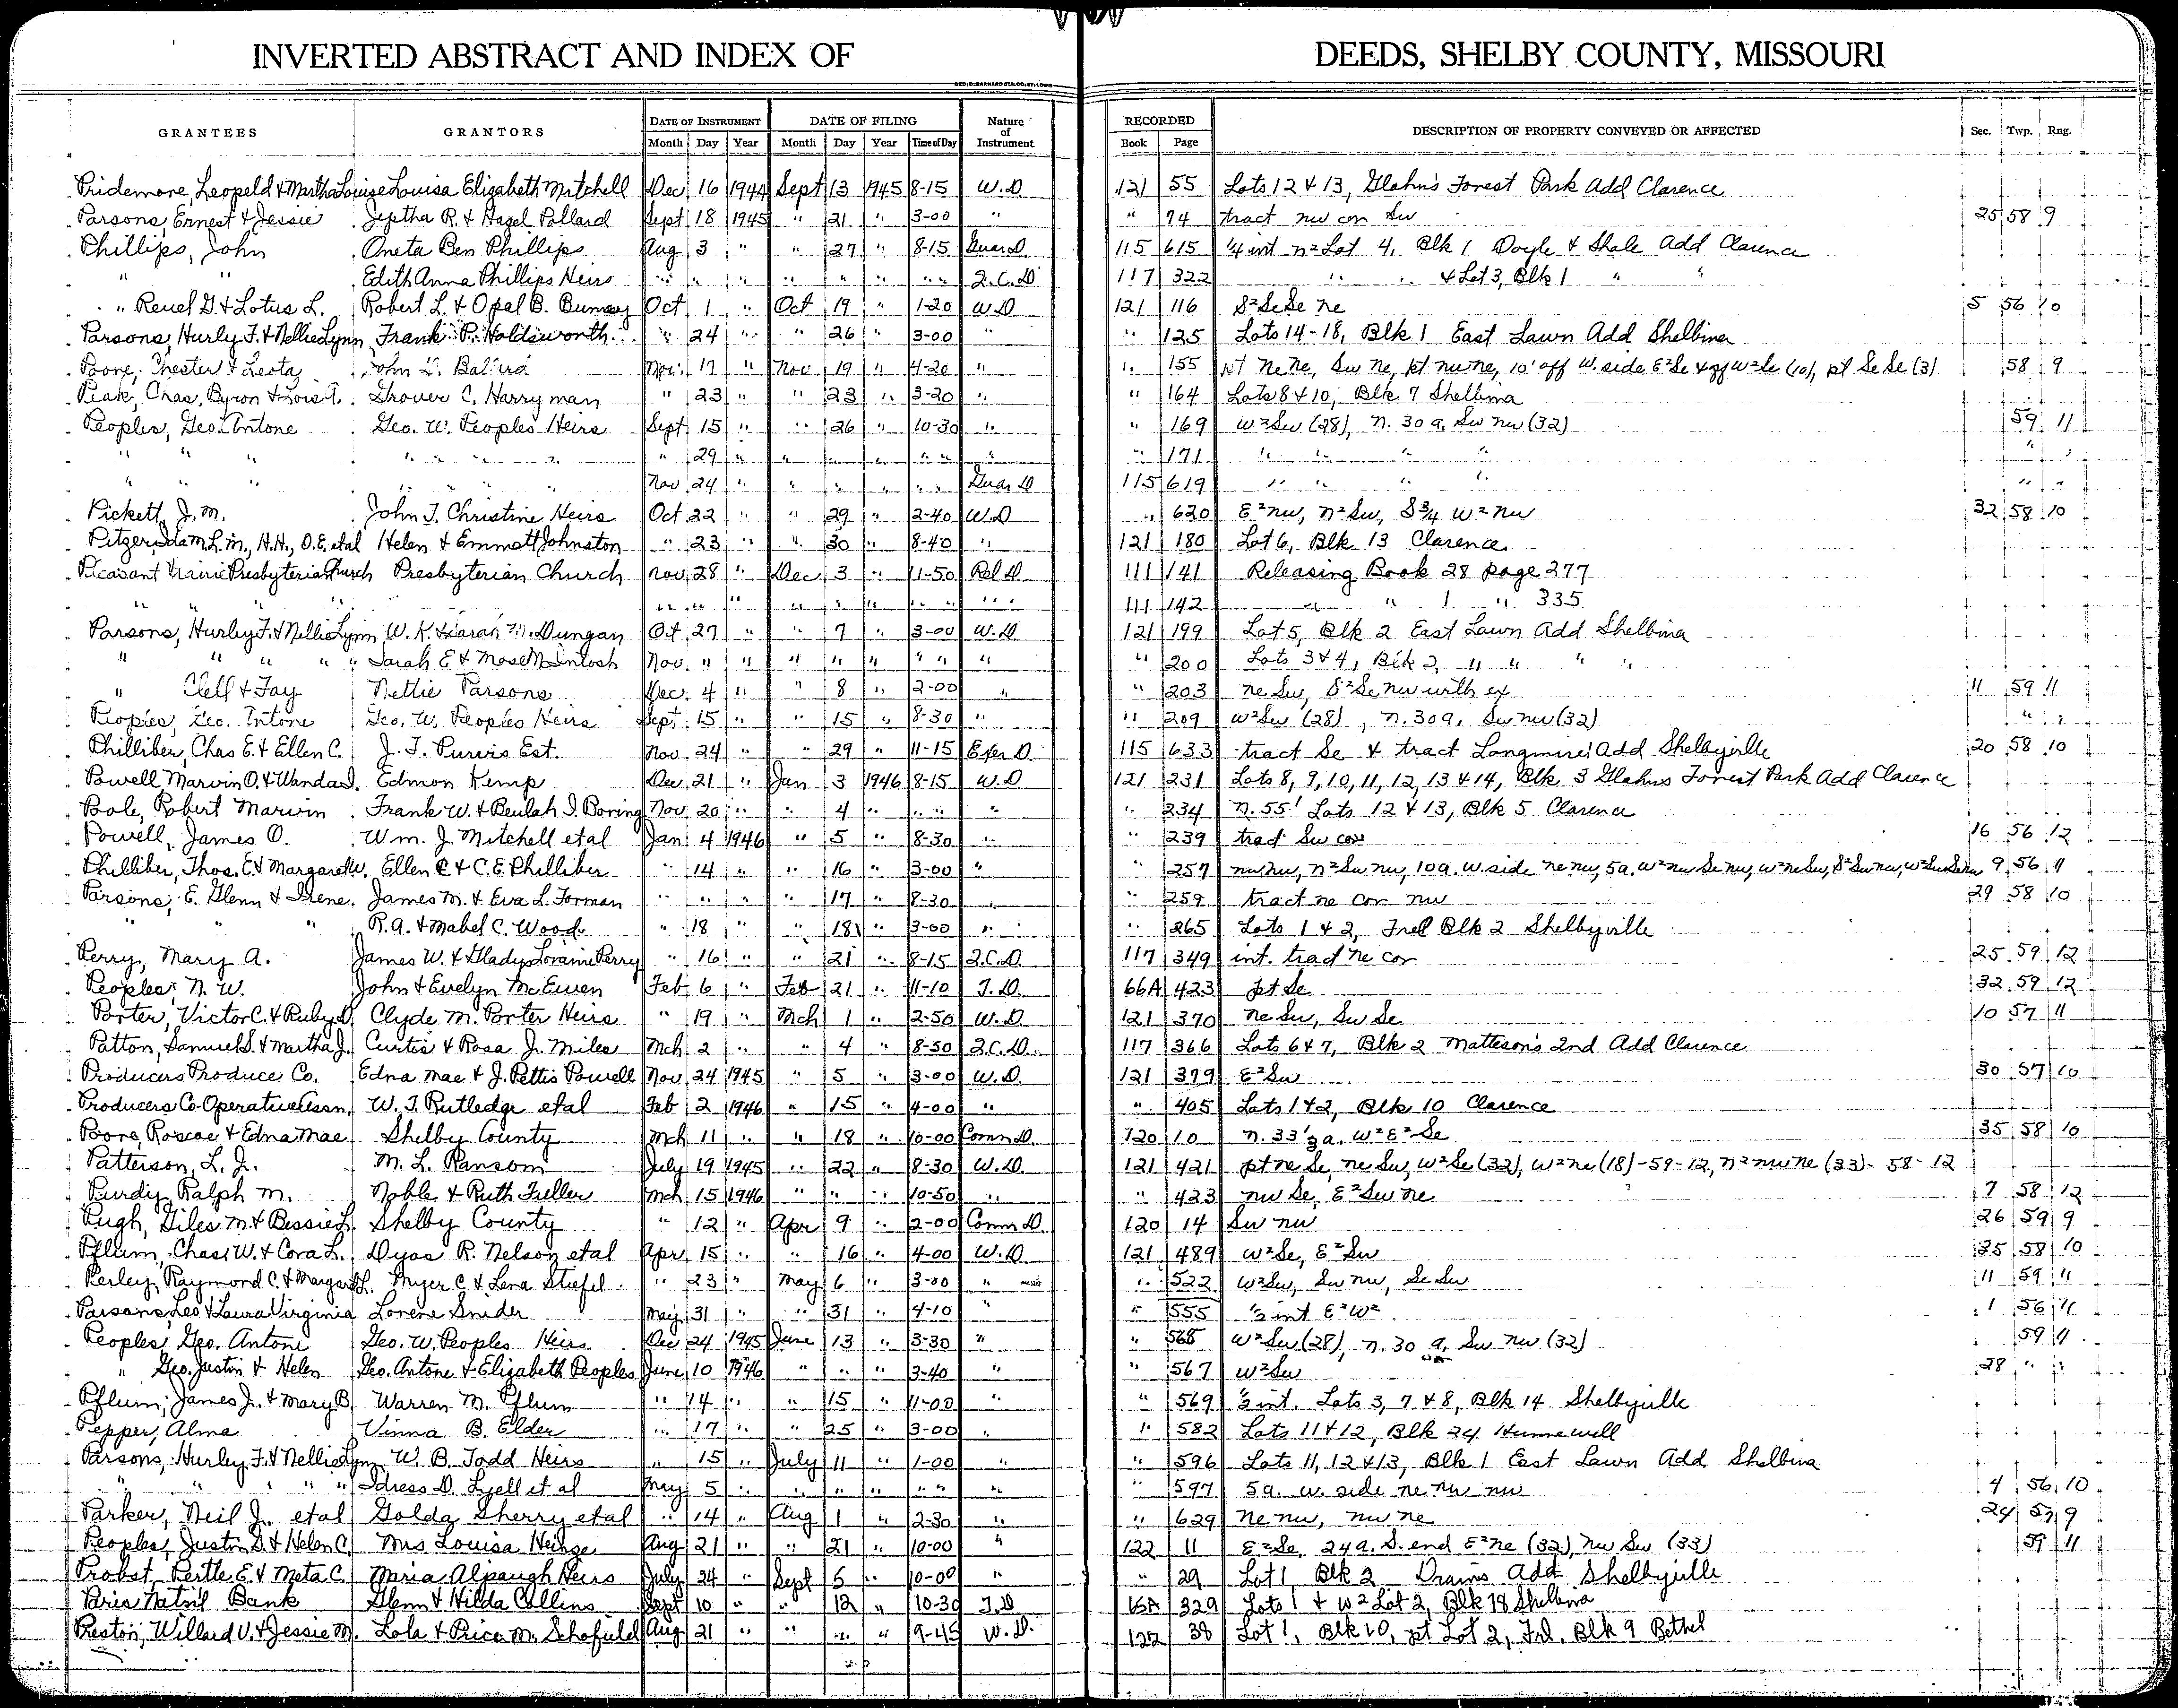 INVERTED ABSTRACT AND INDEX OF DEEDS, SHELBY COUNTY, MISSOURI
GRANTEES GRANTORS DATE OF INSTRUMENT DATE OF FILING Nature of Instrument RECORDED DESCRIPTION OF PROPERTY CONVEYED OR AFFECTED Sec. Twp. Rng.
Month Day Year Month Day Year Time of Day Book Page
Pridemore, Leopold & Martha Louise Louisa Elizabeth Mitchell Dec 16 1944 Sept 13 1945 8-15 W.D 121 55 Lots 12 & 13, Glahn's Forest Park Add Clarence
Parsons, Ernest & Jessie Jeptha R. & Hazel Pollard Sept 18 1945 " 21 " 3-00 " " 74 tract nw cor Sw 25 58 9
Phillips, John Oneta Ben Phillips Aug 3 " " 27 " 8-15 Guar D. 115 615 1/4 int n² Lot 4, Blk 1 Doyle & Shale Add Clarence
" " Edith Anna Phillips Heirs " " " " " " " " Q.C.D. 117 322 " " & Lot 3, Blk 1 " "
" Reuel G. & Lotus L. Robert L. & Opal B. Bumsey Oct 1 " Oct 19 " 1-20 W.D 121 116 S² Se Se ne 5 56 10
Parsons, Hurly F. & Nellie Lynn Frank P. Holdsworth " 24 " " 26 " 3-00 " " 125 Lots 14-18, Blk 1 East Lawn Add Shelbina
Poore, Chester & Leota John L. Ballard Nov. 17 " Nov 19 " 4-20 " " 155 pt ne ne, Sw ne, pt nw ne, 10' off W. side E² Se & pt W² Se (10), pt Se Se (3) 58 9
Peak, Chas, Byron & Lois A. Grover C. Harryman " 23 " " 23 " 3-20 " " 164 Lots 8 & 10, Blk 7 Shelbina
Peoples, Geo. Antone Geo. W. Peoples Heirs Sept 15 " " 26 " 10-30 " " 169 W² Sw (28), n. 30 a. Sw nw (32) 59 11
" " " " " " " " 29 " " " " " " " " 171 " " " " " "
" " " " " " Nov 24 " " " " " " Guar D 115 619 " " " " " "
Pickett, J. M. John T. Christine Heirs Oct 22 " " 29 " 2-40 W.D " 620 E² nw, n² Sw, S 3/4 W² nw 32 58 10
Pitzer, Ida M. L. M., H.H., O.E. etal Helen & Emmett Johnston " 23 " " 30 " 8-40 " 121 180 Lot 6, Blk 13 Clarence
Pleasant Prairie Presbyterian Church Presbyterian Church Nov 28 " Dec 3 " 11-50 Rel D 111 141 Releasing Book 28 page 277
" " " " " " " " " " " " " 111 142 " " 1 " 335
Parsons, Hurley F. & Nellie Lynn W. K. & Sarah M. Dungan Oct 27 " " 7 " 3-00 W.D 121 199 Lot 5, Blk 2 East Lawn Add Shelbina
" " " " " Sarah E & Mose McIntosh Nov. " " " " " " " " " 200 Lots 3 & 4, Blk 2 " " " "
" Clell & Fay Nettie Parsons Dec. 4 " " 8 " 2-00 " " 203 ne Sw, S² Se nw with ex 11 59 11
Peoples, Geo. Antone Geo. W. Peoples Heirs Sept 15 " " 15 " 8-30 " " 209 W² Sw (28), n. 30 a. Sw nw (32) " "
Philliber, Chas E. & Ellen C. J. T. Purvis Est. Nov. 24 " " 29 " 11-15 Exer D. 115 633 tract Se & tract Longmire's Add Shelbyville 20 58 10
Powell Marvin O. & Wanda J. Edmon Kemp Dec. 21 " Jan 3 1946 8-15 W.D 121 231 Lots 8, 9, 10, 11, 12, 13 & 14, Blk 3 Glahns Forrest Park Add Clarence
Poole, Robert Marvin Frank W. & Beulah I. Boring Nov. 20 " " 4 " " " " " 234 n. 55' Lots 12 & 13, Blk 5 Clarence
Powell, James O. Wm. J. Mitchell etal Jan 4 1946 " 5 " 8-30 " " 239 tract Sw cor 16 56 12
Philliber, Thos. E. & Margaret W. Ellen C & C. E. Philliber " 14 " " 16 " 3-00 " " 257 nw nw, n² Sw nw, 10 a. W. side ne nw, 5 a. W² nw Se nw, W² ne Sw, S² Sw nw, W² Sw Se nw 9 56 11
Parsons, E. Glenn & Irene James M. & Eva L. Forman " " " " 17 " 8-30 " " 259 tract ne cor nw 29 58 10
" " " R. A. & Mabel C. Wood " 18 " " 18 " 3-00 " " 265 Lots 1 & 2, Frel Blk 2 Shelbyville
Perry, Mary A. James W. & Gladys Loraine Perry " 16 " " 21 " 8-15 Q.C.D. 117 349 int. tract ne cor 25 59 12
Peoples, N. W. John & Evelyn McEwen Feb 6 " Feb 21 " 11-10 T.D. 66A 423 pt Se 32 59 12
Porter, Victor C. & Ruby D. Clyde M. Porter Heirs " 19 " Mch 1 " 2-50 W.D. 121 370 ne Sw, Sw Se 10 57 11
Patton, Samuel S. & Martha J. Curtis & Rosa J. Miles Mch 2 " " 4 " 8-50 Q.C.D. 117 366 Lots 6 & 7, Blk 2 Matteson's 2nd Add Clarence
Producers Produce Co. Edna Mae & J. Pettis Powell Nov 24 1945 " 5 " 3-00 W.D. 121 379 E² Sw 30 57 10
Producers Co-Operative Assn, W. T. Rutledge etal Feb 2 1946 " 15 " 4-00 " " 405 Lots 1 & 2, Blk 10 Clarence
Poore, Roscoe & Edna Mae Shelby County Mch 11 " " 18 " 10-00 Comm D. 120 10 n. 33 1/3 a. W² E² Se 35 58 10
Patterson, L. J. M. L. Ransom July 19 1945 " 22 " 8-30 W.D. 121 421 pt ne Se, ne Sw, W² Se (32), W² ne (18)-59-12, n² nw ne (33)- 58-12
Purdy, Ralph M. Noble & Ruth Fuller Mch 15 1946 " " " 10-50 " " 423 nw Se, E² Sw ne 7 58 12
Pugh, Giles M. & Bessie L. Shelby County " 12 " Apr 9 " 2-00 Comm D. 120 14 Sw nw 26 59 9
Pflum, Chas. W. & Cora L. Dyas R. Nelson etal Apr 15 " " 16 " 4-00 W.D. 121 489 W² Se, E² Sw 35 58 10
Perley, Raymond C. & Margaret L. Myer C. & Lena Stiefel " 23 " May 6 " 3-00 " " 522 W² Sw, Sw nw, Se Sw 11 59 11
Parsons, Leo & Laura Virginia Lorene Snider May 31 " " 31 " 4-10 " " 555 1/2 int E² W² 1 56 11
Peoples, Geo. Antone Geo. W. Peoples Heirs Dec 24 1945 June 13 " 3-30 " " 565 W² Sw (28), n. 30 a. Sw nw (32) 59 11
" Geo. Justin & Helen Geo. Antone & Elizabeth Peoples June 10 1946 " " " 3-40 " " 567 W² Sw 28 " "
Pflum, James J. & Mary B. Warren M. Pflum " 14 " " 15 " 11-00 " " 569 1/2 int. Lots 3, 7 & 8, Blk 14 Shelbyville
Pepper, Alma Vinna B. Elder " 17 " " 25 " 3-00 " " 582 Lots 11 & 12, Blk 24 Hunnewell
Parsons, Hurley F. & Nellie Lynn W. B. Todd Heirs " 15 " July 11 " 1-00 " " 596 Lots 11, 12 & 13, Blk 1 East Lawn Add Shelbina
" " " " Idress D. Lyell et al May 5 " " " " " " " " 597 5 a. W. side ne nw nw 4 56 10
Parker, Neil J. etal Golda Sherry etal " 14 " Aug 1 " 2-30 " " 629 ne nw, nw ne 24 57 9
Peoples, Justin G. & Helen C. Mrs Louisa Heinze Aug 21 " " 21 " 10-00 " 122 11 E² Se, 24 a. S. end E² ne (32), nw Sw (33) 59 11
Probst, Pertle E. & Meta C. Maria Alpaugh Heirs July 24 " Sept 5 " 10-00 " " 29 Lot 1, Blk 2 Drains Add Shelbyville
Paris Nat'nl Bank Glenn & Hilda Collins Sept 10 " " 12 " 10-30 T.D 329 Lots 1 & W² Lot 2, Blk 18 Shelbina
Preston, Willard V. & Jessie M. Lola & Price M. Shofield Aug 21 " " " " 9-45 W.D. 122 38 Lot 1, Blk 10, pt Lot 2, Frl. Blk 9 Bethel